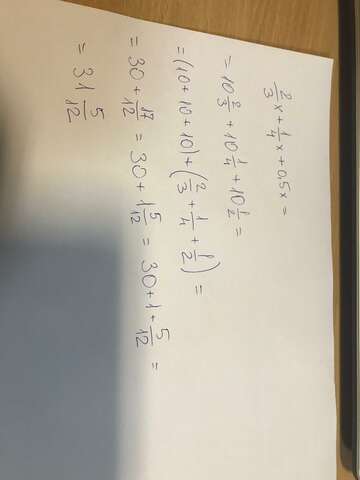 2/3 x + 1/4 x + 0,5x =
= 10 2/3 + 10 1/4 + 10 1/2 =
= (10 + 10 + 10) + (2/3 + 1/4 + 1/2) =
= 30 + 17/12 = 30 + 1 5/12 = 30 + 1 + 5/12 =
= 31 5/12